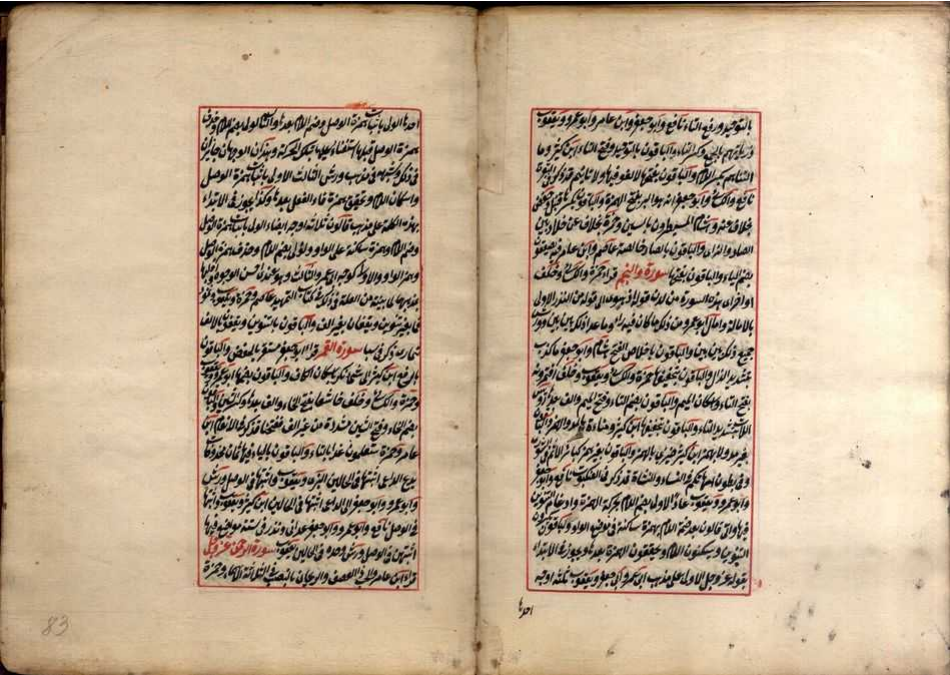 بالتوحيد ورفع التاء نافع وابو جعفر وابن عامر وابو عمرو ويعقوب
ذرياتهم بالجمع وكسر التاء والباقون بالتوحيد وفتح التاء ابن كثير وما
التناهم بكسر اللام والباقون بفتحها لا لغو فيها ولا تاثيم قد ذكر في البقرة
نافع والكسائي وابو جعفر انه هو البر بفتح الهمزة والباقون بكسرها قنبل وحفص
بخلاف عنه وهشام المسيطرون بالسين وحمزة بخلاف عن خلاد بين
الصاد والزاي والباقون بالصاد خالصة عاصم وابن عامر يصعقون
بضم الياء والباقون بفتحها سورة والنجم قرا حمزة والكسائي وخلف
اواخر اي هذه السورة من لدن قوله اذا هوى الى قوله من النذر الاولى
بالامالة وامال ابو عمرو من ذلك ما كان فيه راء وما عدا ذلك بين بين وورش
جميع ذلك بين بين والباقون باخلاص الفتح هشام وابو جعفر ما كذب
بتشديد الذال والباقون بتخفيفها حمزة والكسائي ويعقوب وخلف افتمرونه
بفتح التاء واسكان الميم والباقون بضم التاء وفتح الميم والف بعدها رويس
اللات بتشديد التاء والباقون بتخفيفها ابن كثير ومناءة بالمد والهمز والباقون
بغير مد ولا همز ابن كثير ضيزى بالهمز والباقون بغير همز كبائر الاثم في الشورى
وفي بطون امهاتكم في النساء والنشاة قد ذكر في العنكبوت نافع وابو جعفر
وابو عمرو ويعقوب عادا الاولى بضم اللام بحركة الهمزة وادغام التنوين
فيها واتى قالون بعد ضمة اللام بهمزة ساكنة في موضع الواو والباقون يكسرون
التنوين ويسكنون اللام ويحققون الهمزة بعدها ويجوز في الابتداء
بقوله عز وجل الاولى على مذهب ابي عمرو وابي جعفر ويعقوب ثلثة اوجه
احدها
احدها الولى باثبات همزة الوصل وضم اللام بعدها والثاني لولى بضم اللام وحذف
همزة الوصل قبلها استغناء عنها بتلك الحركة وهذان الوجهان جايزان
في ذلك وشبهه في مذهب ورش الثالث الاولى باثبات همزة الوصل
واسكان اللام وتحقيق همزة فاء الفعل بعدها وكذا يجوز في الابتداء
بهذه الكلمة على مذهب قالون ثلاثة اوجه ايضا الولى باثبات همزة الوصل
وضم اللام وهمزة ساكنة على الواو ولولى بضم اللام وحذف همزة الوصل
وهمز الواو والاولى كوجه ابي عمرو الثالث وهو عندي احسن الوجوه
لما بينته من العلة في ذلك في كتاب التمهيد عاصم وحمزة ويعقوب وثمود
فما بغير تنوين ويقفان بغير الف والباقون بالتنوين ويقفون بالالف
سورة القمر قرا ابو جعفر مستقر بالخفض والباقون
بالرفع ابن كثير الى شيء نكر باسكان الكاف والباقون بضمها ابو عمرو ويعقوب
وحمزة والكسائي وخلف خاشعا بفتح الخاء والف بعدها وكسر الشين والباقون
بضم الخاء وفتح الشين مشددة من غير الف ففتحنا قد ذكر في الانعام ابن
عامر وحمزة ستعلمون غدا بالتاء والباقون بالياء فيها ثمان محذوفات
يدع الداعي اثبتها في الحالين البزي ويعقوب واثبتها في الوصل ورش
وابو عمرو وابو جعفر الى الداعي اثبتها في الحالين ابن كثير ويعقوب واثبتها
في الوصل نافع وابو عمرو وابو جعفر عذابي ونذر في ستة مواضع فيها
اثبتهن في الوصل ورش وحده وفي الحالين يعقوب سورة الرحمن عز وجل
قرا ابن عامر والحب ذا العصف والريحان بالنصب في الثلاثة الاسماء وحمزة
83